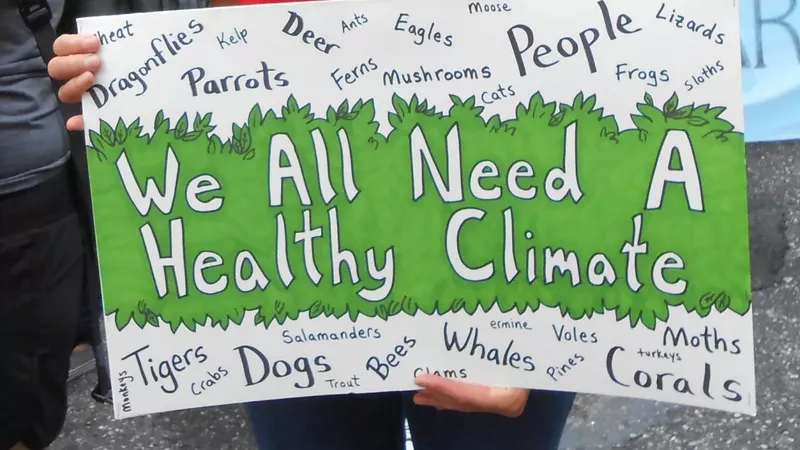 Moose
Dragonflies Kelp Deer Ants Eagles People Lizards
Parrots Ferns Mushrooms Cats Frogs Sloths
We All Need A
Healthy Climate
Monkeys Tigers Crabs Dogs Salamanders Trout Bees Clams Whales ermine Voles Pines turkeys Moths
Corals